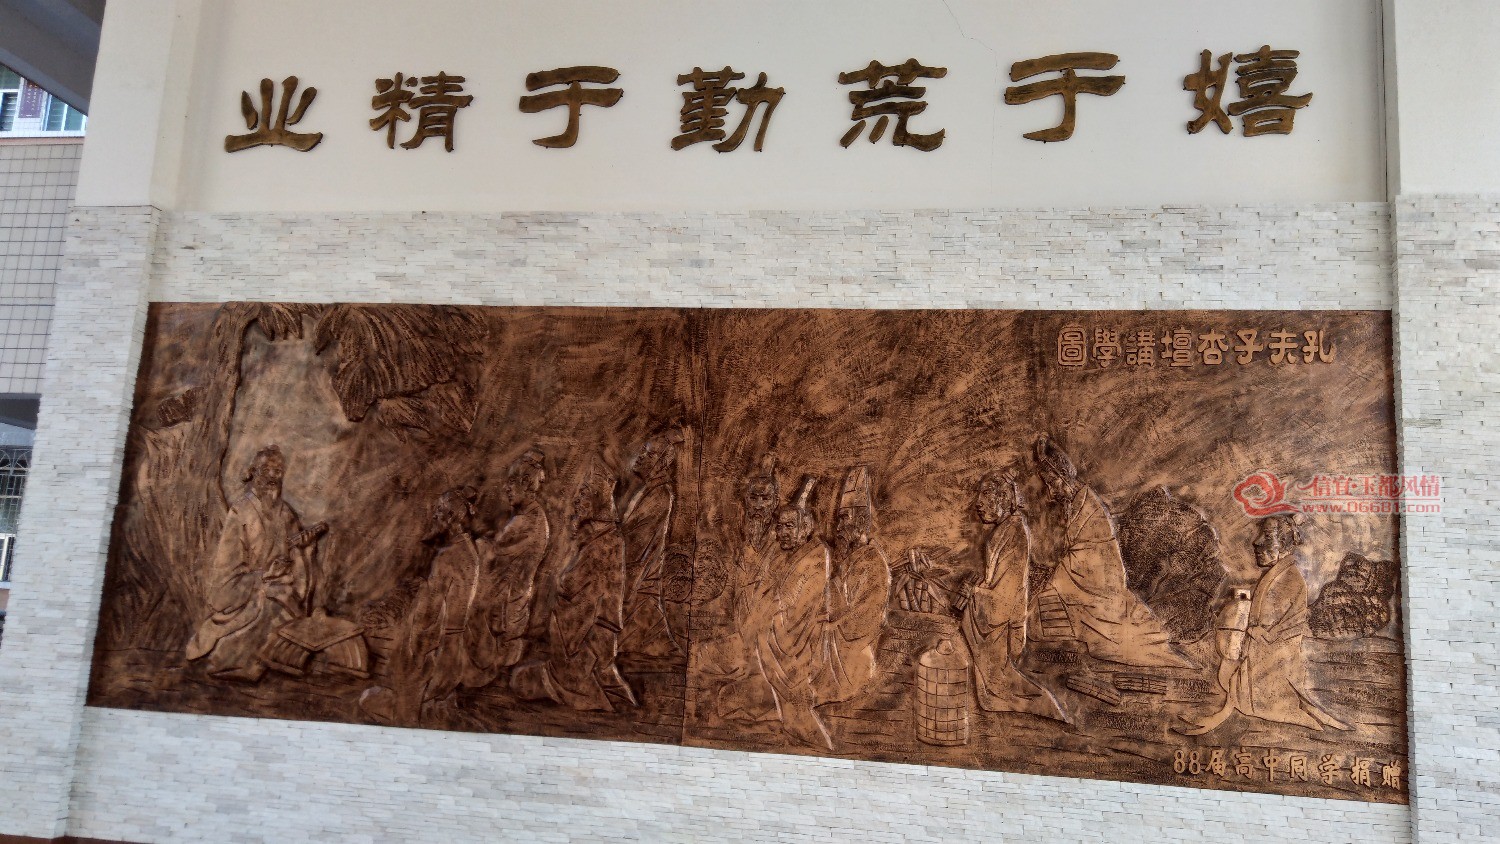 业精于勤荒于嬉
孔夫子杏壇講學圖
信宜·玉都风情
www.06681.com
88届高中同学捐赠